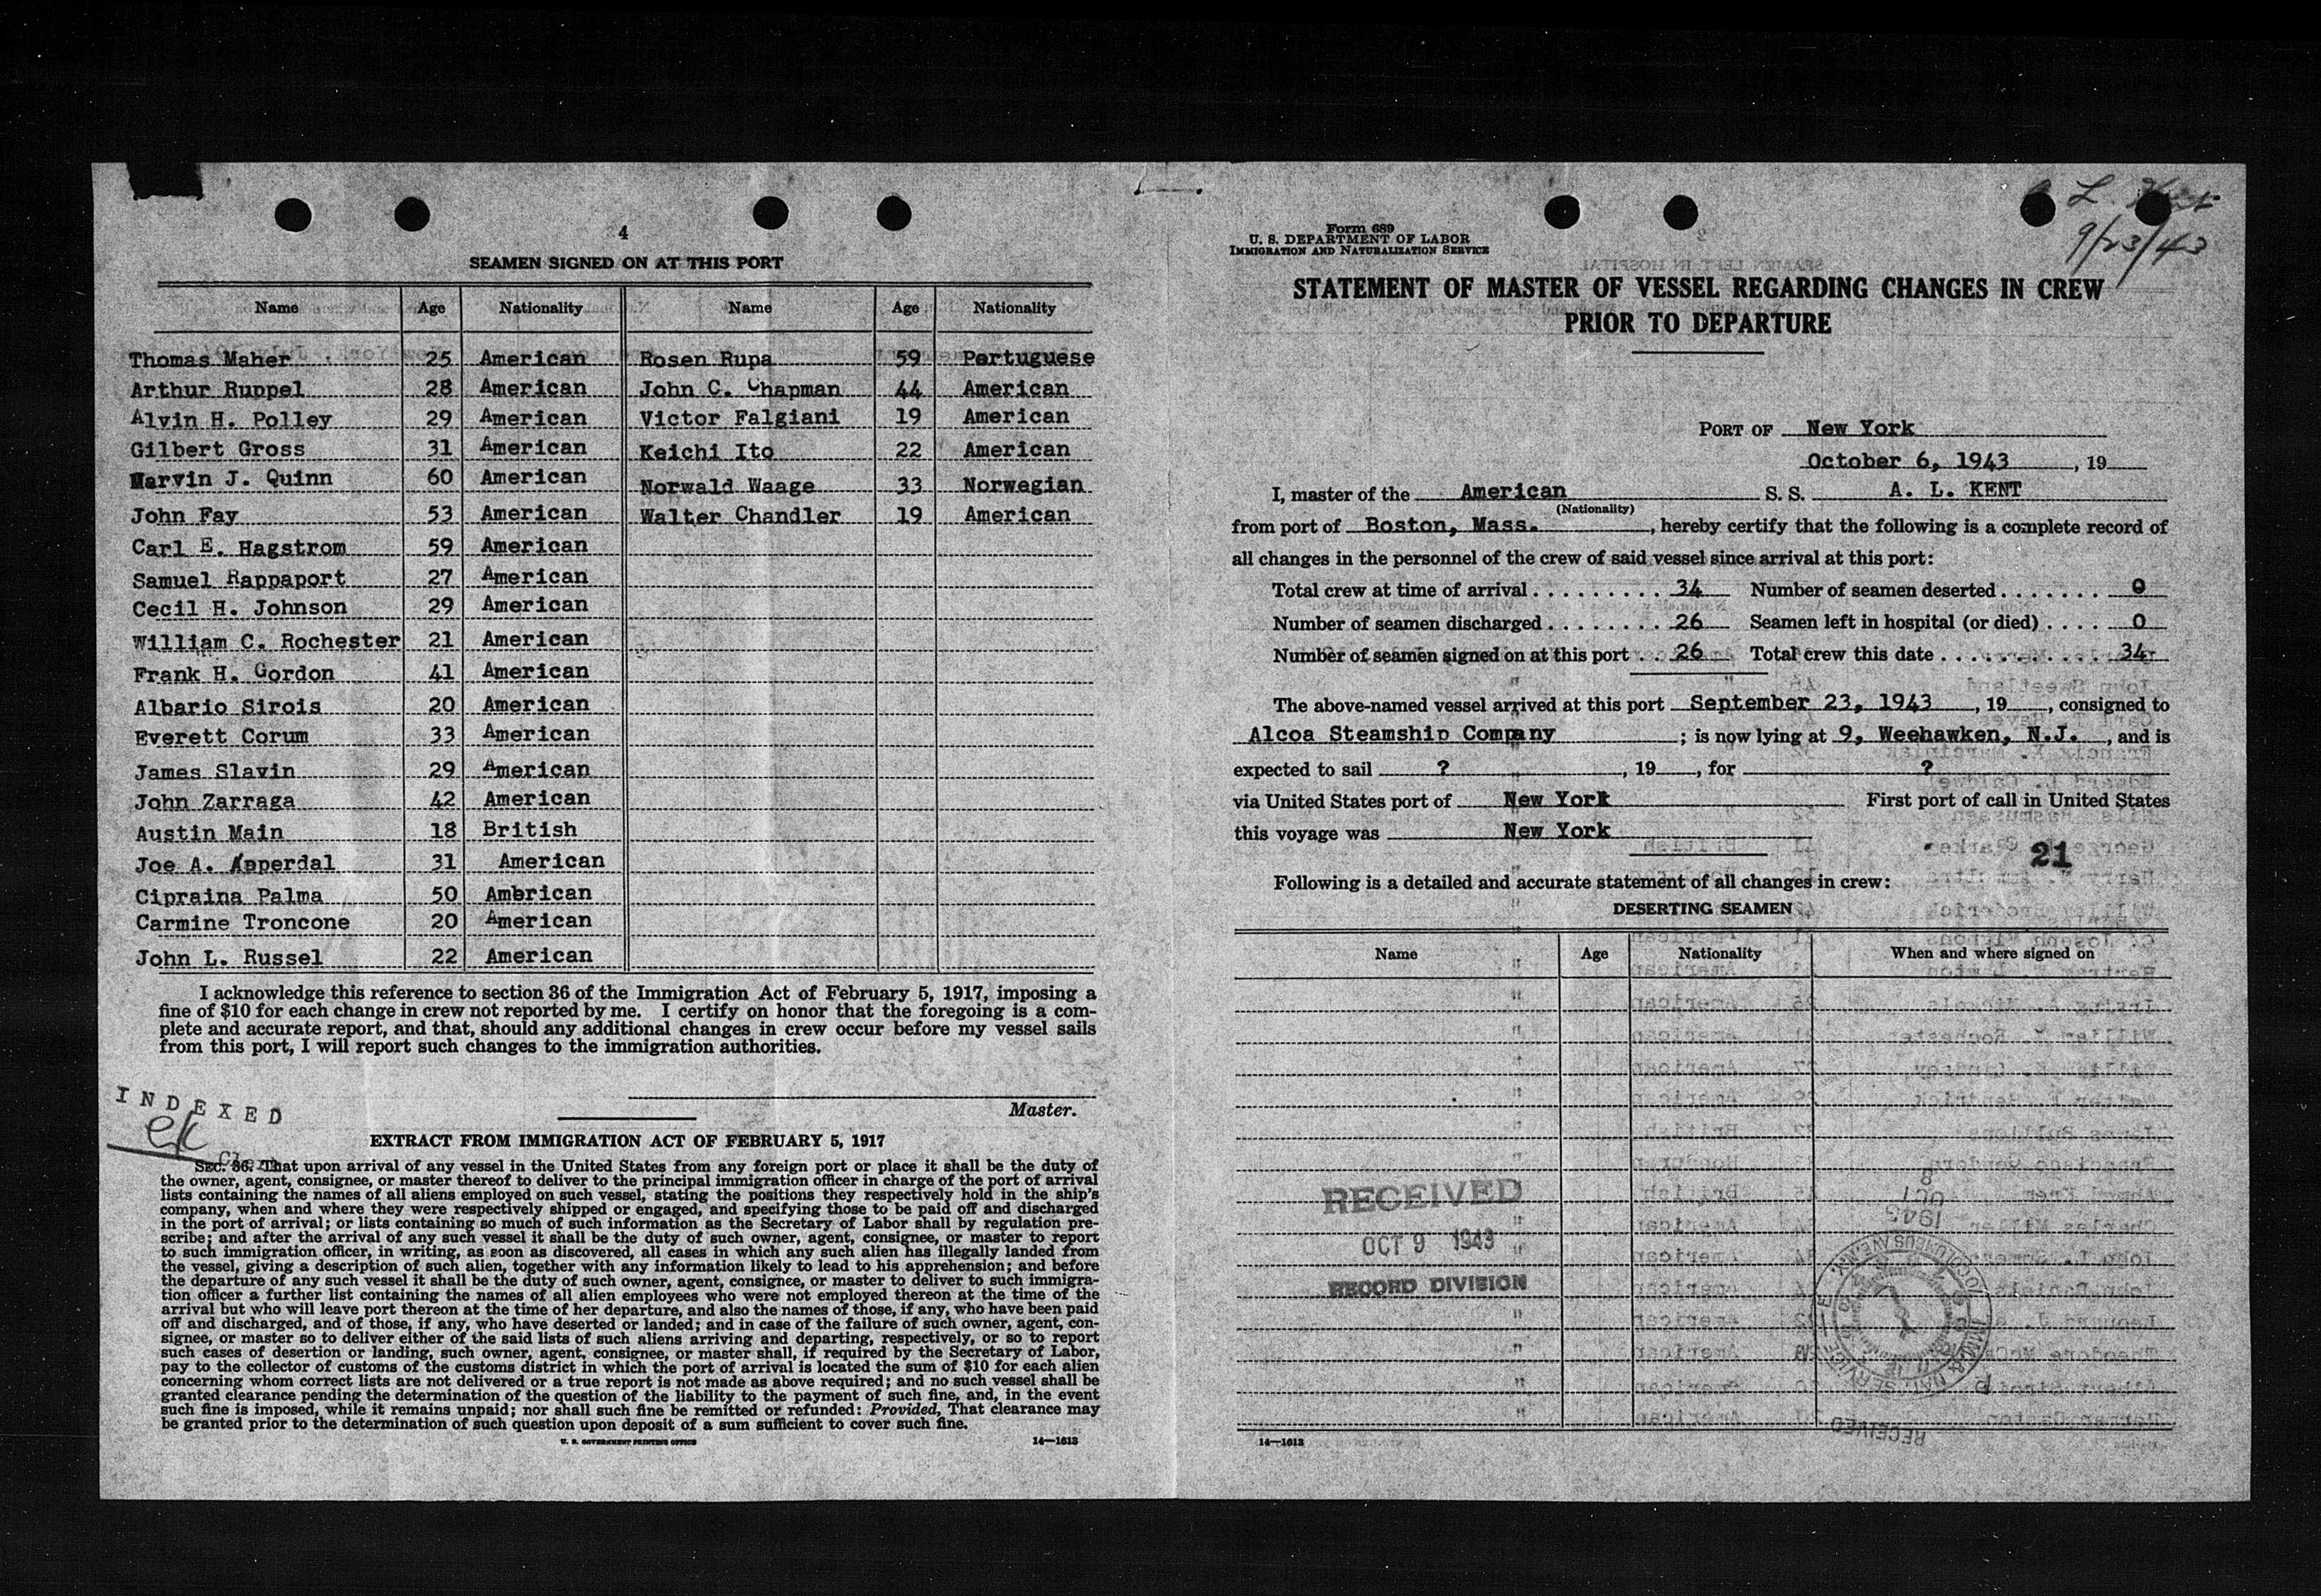 4
SEAMEN SIGNED ON AT THIS PORT
Name Age Nationality Name Age Nationality
Thomas Maher 25 American Rosen Rupa 59 Portuguese
Arthur Ruppel 28 American John C. Chapman 44 American
Alvin H. Polley 29 American Victor Falgiani 19 American
Gilbert Gross 31 American Keichi Ito 22 American
Marvin J. Quinn 60 American Norwald Waage 33 Norwegian
John Fay 53 American Walter Chandler 19 American
Carl E. Hagstrom 59 American
Samuel Rappaport 27 American
Cecil H. Johnson 29 American
William C. Rochester 21 American
Frank H. Gordon 41 American
Albario Sirois 20 American
Everett Corum 33 American
James Slavin 29 American
John Zarraga 42 American
Austin Main 18 British
Joe A. Apperdal 31 American
Cipraina Palma 50 American
Carmine Troncone 20 American
John L. Russel 22 American
I acknowledge this reference to section 36 of the Immigration Act of February 5, 1917, imposing a
fine of $10 for each change in crew not reported by me. I certify on honor that the foregoing is a com-
plete and accurate report, and that, should any additional changes in crew occur before my vessel sails
from this port, I will report such changes to the immigration authorities.
Master.
INDEXED
EXTRACT FROM IMMIGRATION ACT OF FEBRUARY 5, 1917
SEC. 36. That upon arrival of any vessel in the United States from any foreign port or place it shall be the duty of
the owner, agent, consignee, or master thereof to deliver to the principal immigration officer in charge of the port of arrival
lists containing the names of all aliens employed on such vessel, stating the positions they respectively hold in the ship's
company, when and where they were respectively shipped or engaged, and specifying those to be paid off and discharged
in the port of arrival; or lists containing so much of such information as the Secretary of Labor shall by regulation pre-
scribe; and after the arrival of any such vessel it shall be the duty of such owner, agent, consignee, or master to report
to such immigration officer, in writing, as soon as discovered, all cases in which any such alien has illegally landed from
the vessel, giving a description of such alien, together with any information likely to lead to his apprehension; and before
the departure of any such vessel it shall be the duty of such owner, agent, consignee, or master to deliver to such immigra-
tion officer a further list containing the names of all alien employees who were not employed thereon at the time of the
arrival but who will leave port thereon at the time of her departure, and also the names of those, if any, who have been paid
off and discharged, and of those, if any, who have deserted or landed; and in case of the failure of such owner, agent, con-
signee, or master so to deliver either of the said lists of such aliens arriving and departing, respectively, or so to report
such cases of desertion or landing, such owner, agent, consignee, or master shall, if required by the Secretary of Labor,
pay to the collector of customs of the customs district in which the port of arrival is located the sum of $10 for each alien
concerning whom correct lists are not delivered or a true report is not made as above required; and no such vessel shall be
granted clearance pending the determination of the question of the liability to the payment of such fine, and, in the event
such fine is imposed, while it remains unpaid; nor shall such fine be remitted or refunded: Provided, That clearance may
be granted prior to the determination of such question upon deposit of a sum sufficient to cover such fine.
U. S. GOVERNMENT PRINTING OFFICE 14—1613
9/23/43
Form 689
U. S. DEPARTMENT OF LABOR
IMMIGRATION AND NATURALIZATION SERVICE
STATEMENT OF MASTER OF VESSEL REGARDING CHANGES IN CREW
PRIOR TO DEPARTURE
PORT OF New York
October 6, 1943, 19
I, master of the American S. S. A. L. KENT
(Nationality)
from port of Boston, Mass., hereby certify that the following is a complete record of
all changes in the personnel of the crew of said vessel since arrival at this port:
Total crew at time of arrival 34 Number of seamen deserted 0
Number of seamen discharged 26 Seamen left in hospital (or died) 0
Number of seamen signed on at this port 26 Total crew this date 34
The above-named vessel arrived at this port September 23, 1943, 19, consigned to
Alcoa Steamship Company; is now lying at 9, Weehawken, N.J., and is
expected to sail ?, 19, for ?
via United States port of New York First port of call in United States
this voyage was New York
21
Following is a detailed and accurate statement of all changes in crew:
DESERTING SEAMEN
Name Age Nationality When and where signed on
RECEIVED
OCT 9 1943
RECORD DIVISION
14—1613